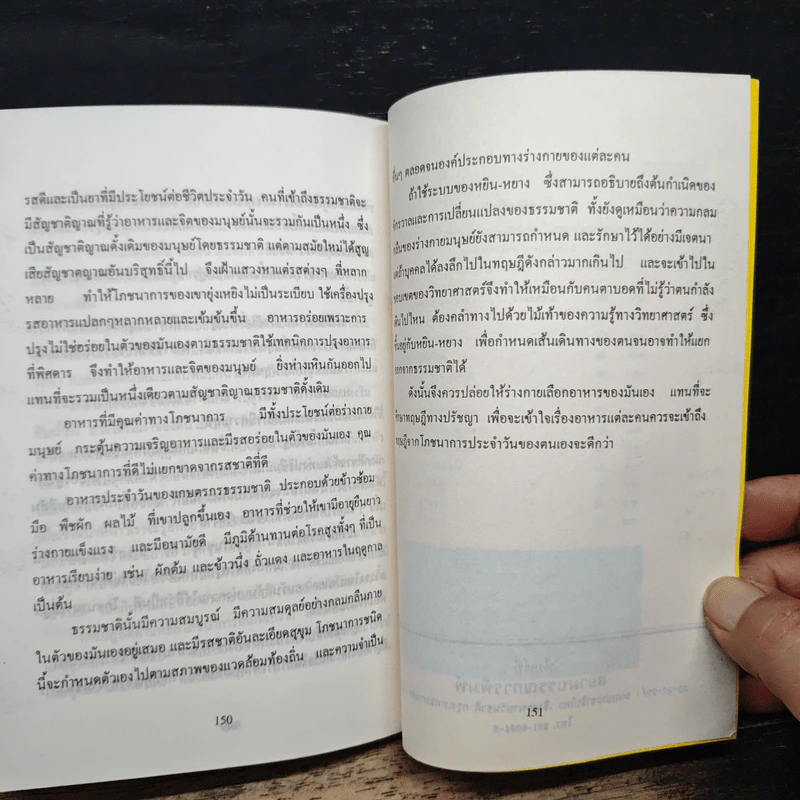 รสดีและเป็นยาที่มีประโยชน์ต่อชีวิตประจำวัน คนที่เข้าถึงธรรมชาติจะ
มีสัญชาติญาณที่รู้ว่าอาหารและจิตของมนุษย์นั้นจะรวมกันเป็นหนึ่ง ซึ่ง
เป็นสัญชาติญาณดั้งเดิมของมนุษย์โดยธรรมชาติ แต่ตามสมัยใหม่ได้สูญ
เสียสัญชาตญาณอันบริสุทธิ์นี้ไป จึงเฝ้าแสวงหาแต่รสต่างๆ ที่หลาก
หลาย ทำให้โภชนาการของเขายุ่งเหยิงไม่เป็นระเบียบ ใช้เครื่องปรุง
รสอาหารแปลกๆหลากหลายและเข้มข้นขึ้น อาหารอร่อยเพราะการ
ปรุงไม่ใช่อร่อยในตัวของมันเองตามธรรมชาติใช้เทคนิคการปรุงอาหาร
ที่พิศดาร จึงทำให้อาหารและจิตของมนุษย์ ยิ่งห่างเหินกันออกไป
แทนที่จะรวมเป็นหนึ่งเดียวตามสัญชาติญาณธรรมชาติดั้งเดิม
อาหารที่มีคุณค่าทางโภชนาการ มีทั้งประโยชน์ต่อร่างกาย
มนุษย์ กระตุ้นความเจริญอาหารและมีรสอร่อยในตัวของมันเอง คุณ
ค่าทางโภชนาการที่ดีไม่แยกขาดจากรสชาติที่ดี
อาหารประจำวันของเกษตรกรธรรมชาติ ประกอบด้วยข้าวซ้อม
มือ พืชผัก ผลไม้ ที่เขาปลูกขึ้นเอง อาหารที่ช่วยให้เขามีอายุยืนยาว
ร่างกายแข็งแรง และมีอนามัยดี มีภูมิต้านทานต่อโรคสูงทั้งๆ ที่เป็น
อาหารเรียบง่าย เช่น ผักต้ม และข้าวนึ่ง ถั่วแดง และอาหารในฤดูกาล
เป็นต้น
ธรรมชาตินั้นมีความสมบูรณ์ มีความสมดุลย์อย่างกลมกลืนภาย
ในตัวของมันเองอยู่เสมอ และมีรสชาติอันละเอียดสุขุม โภชนาการชนิด
นี้จะกำหนดตัวเองไปตามสภาพของแวดล้อมท้องถิ่น และความจำเป็น
150
อื่นๆ ตลอดจนองค์ประกอบทางร่างกายของแต่ละคน
ถ้าใช้ระบบของหยิน-หยาง ซึ่งสามารถอธิบายถึงต้นกำเนิดของ
จักรวาลและการเปลี่ยนแปลงของธรรมชาติ ทั้งยังดูเหมือนว่าความกลม
กลืนของร่างกายมนุษย์ยังสามารถกำหนด และรักษาไว้ได้อย่างมีเจตนา
แต่ถ้าบุคคลได้ลงลึกไปในทฤษฎีดังกล่าวมากเกินไป และจะเข้าไปใน
ขอบเขตของวิทยาศาสตร์จึงทำให้เหมือนกับคนตาบอดที่ไม่รู้ว่าตนกำลัง
เดินไปไหน ต้องคลำทางไปด้วยไม้เท้าของความรู้ทางวิทยาศาสตร์ ซึ่ง
ขึ้นอยู่กับหยิน-หยาง เพื่อกำหนดเส้นเดินทางของตนจนอาจทำให้แยก
ออกจากธรรมชาติได้
ดังนั้นจึงควรปล่อยให้ร่างกายเลือกอาหารของมันเอง แทนที่จะ
ศึกษาทฤษฎีทางปรัชญา เพื่อจะเข้าใจเรื่องอาหารแต่ละคนควรจะเข้าถึง
ทฤษฎีจากโภชนาการประจำวันของตนเองจะดีกว่า
151